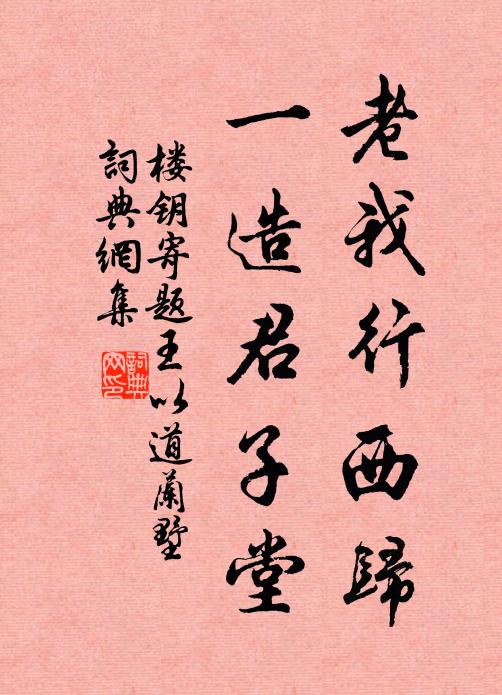 老我行西歸
一造君子堂
楼钥寄题王以道蘭墅
詞典網集
詞典网印